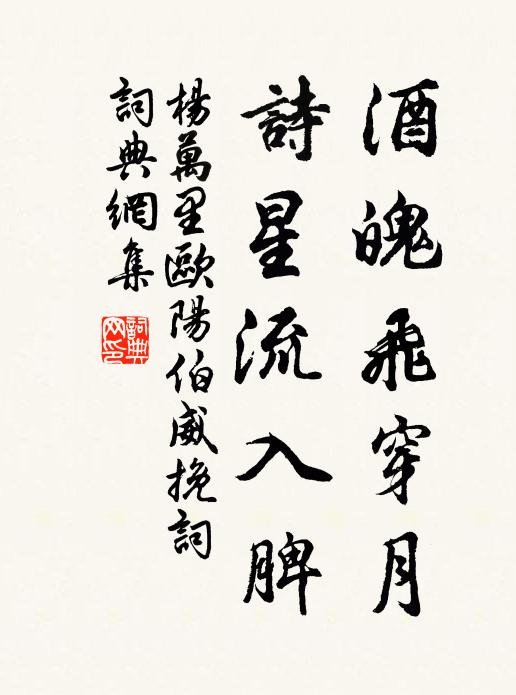 酒魄飛穿月
詩星流入脾
楊萬里歐陽伯威挽詞
詞典網集
詞典网印